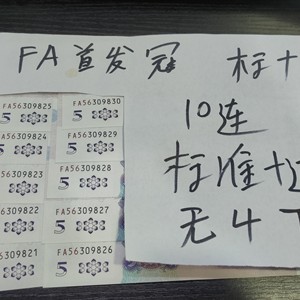 FA首发冠 标十
10连
标准十
无4
FA56309825
5
FA56309830
5
FA56309824
5
FA56309829
5
56309823
5
FA56309828
5
6309822
5
FA56309827
5
6309821
5
FA56309826
5